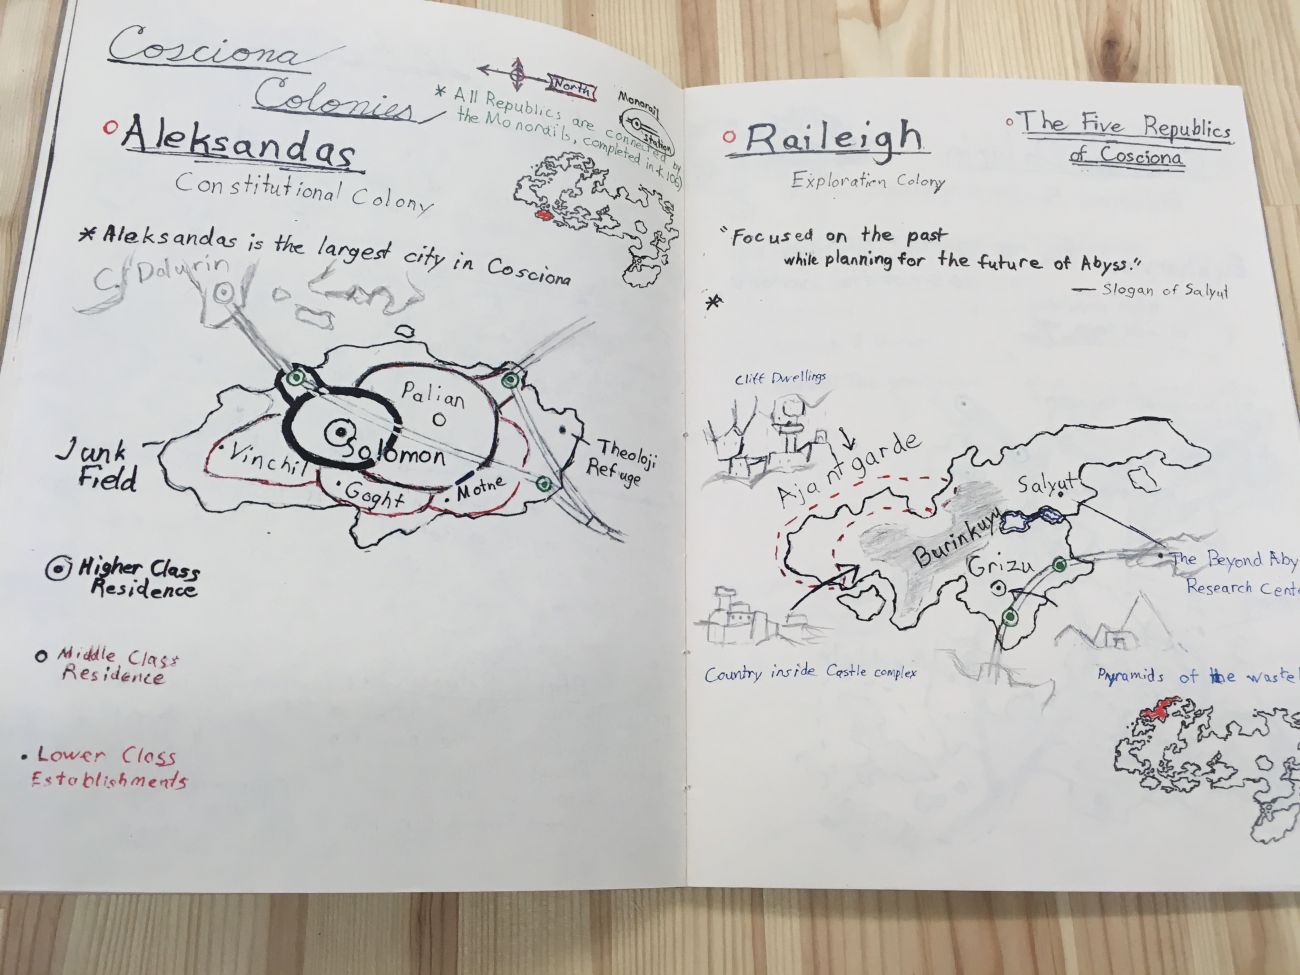 Cosciona
Colonies
North
* All Republics are connected by
the Monorails, completed in
Monorail
Station
Aleksandas
Constitutional Colony
* Aleksandas is the largest city in Cosciona
Palian
Solomon
Vinchil
Goght
Motne
Junk
Field
Theoloji
Refuge
Higher Class
Residence
Middle Class
Residence
Lower Class
Establishments
Raileigh
Exploration Colony
The Five Republics
of Cosciona
"Focused on the past
while planning for the future of Abyss."
— Slogan of Salyut
*
Cliff Dwellings
Ajantgarde
Salyut
Burinkuyu
Grizu
The Beyond Aby
Research Cente
Country inside Castle complex
Pyramids of the waste